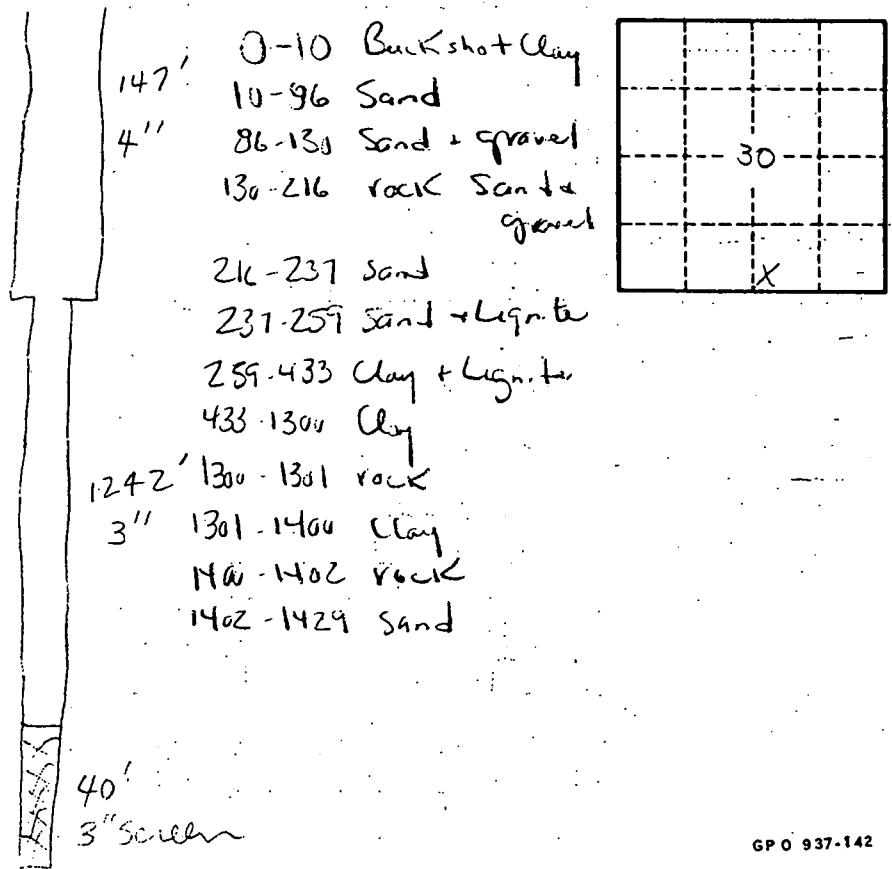 0-10 Buckshot Clay
147'
10-96 Sand
4"
86-130 Sand + gravel
130-216 rock Sand +
gravel
30
X
216-237 Sand
237-259 Sand + Lignite
259-433 Clay + Lignite
433-1300 Clay
1242'
1300-1301 rock
3"
1301-1400 Clay
1400-1402 rock
1402-1429 Sand
40'
3" Screen
GPO 937-142